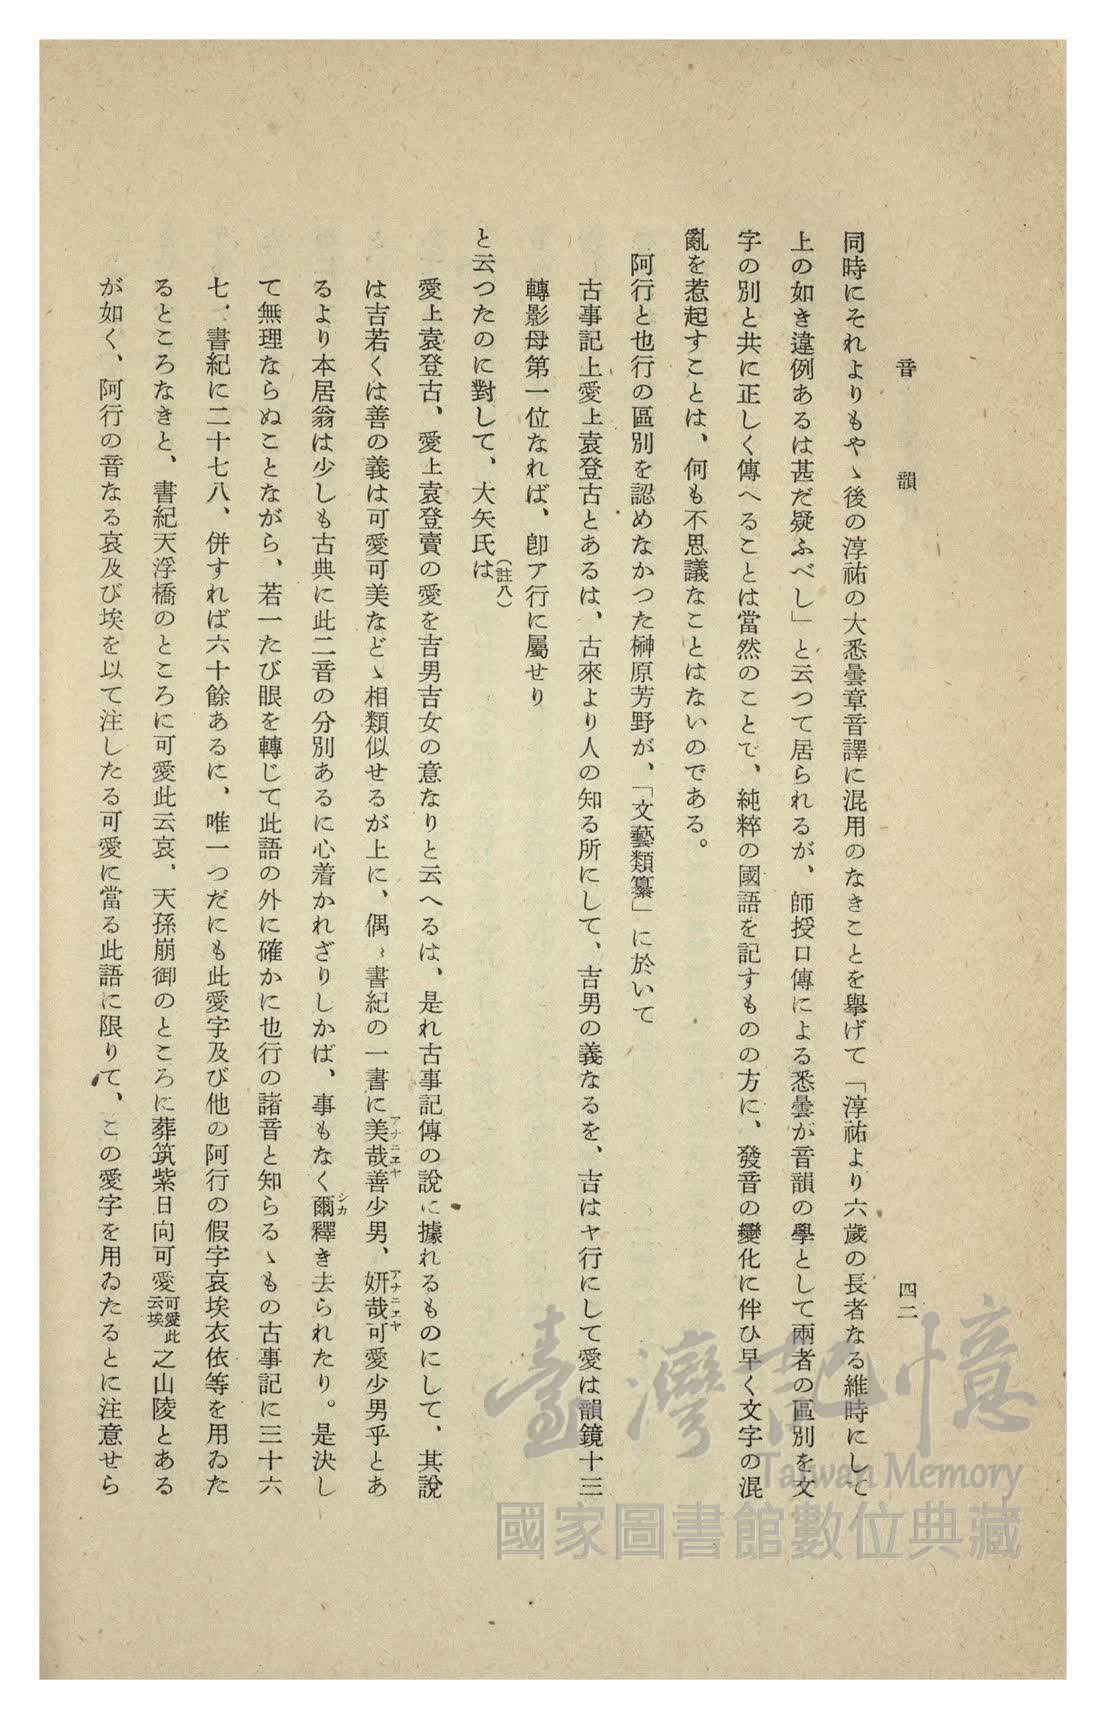 音韻
四二
同時にそれよりもやゝ後の淳祐の大悉曇章音譯に混用のなきことを擧げて「淳祐より六歲の長者なる維時にして
上の如き違例あるは甚だ疑ふべし」と云つて居られるが、師授口傳による悉曇が音韻の學として兩者の區別を文
字の別と共に正しく傳へることは當然のことで、純粹の國語を記すものの方に、發音の變化に伴ひ早く文字の混
亂を惹起すことは、何も不思議なことはないのである。
阿行と也行の區別を認めなかつた榊原芳野が、「文藝類纂」に於いて
古事記上愛上袁登古とあるは、古來より人の知る所にして、吉男の義なるを、吉はヤ行にして愛は韻鏡十三
轉影母第一位なれば、卽ア行に屬せり
と云つたのに對して、大矢氏は(註八)
愛上袁登古、愛上袁登賣の愛を吉男吉女の意なりと云へるは、是れ古事記傳の說に據れるものにして、其說
は吉若くは善の義は可愛可美などゝ相類似せるが上に、偶〻書紀の一書に美哉善少男、妍哉可愛少男乎とあ
アナニヱヤ
アナニヱヤ
るより本居翁は少しも古典に此二音の分別あるに心着かれざりしかば、事もなく爾釋き去られたり。是決し
シカ
て無理ならぬことながら、若一たび眼を轉じて此語の外に確かに也行の諸音と知らるゝもの古事記に三十六
七、書紀に二十七八、併すれば六十餘あるに、唯一つだにも此愛字及び他の阿行の假字哀埃衣依等を用ゐた
るところなきと、書紀天浮橋のところに可愛此云哀、天孫崩御のところに葬筑紫日向可愛可愛此云埃之山陵とある
が如く、阿行の音なる哀及び埃を以て注したる可愛に當る此語に限りて、この愛字を用ゐたるとに注意せら
臺灣記憶
Taiwan Memory
國家圖書館數位典藏